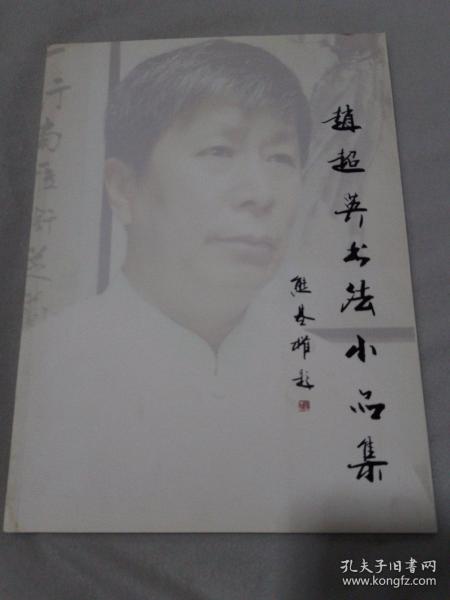 趙超英书法小品集
熊基权题
孔夫子旧书网
www.kongfz.com